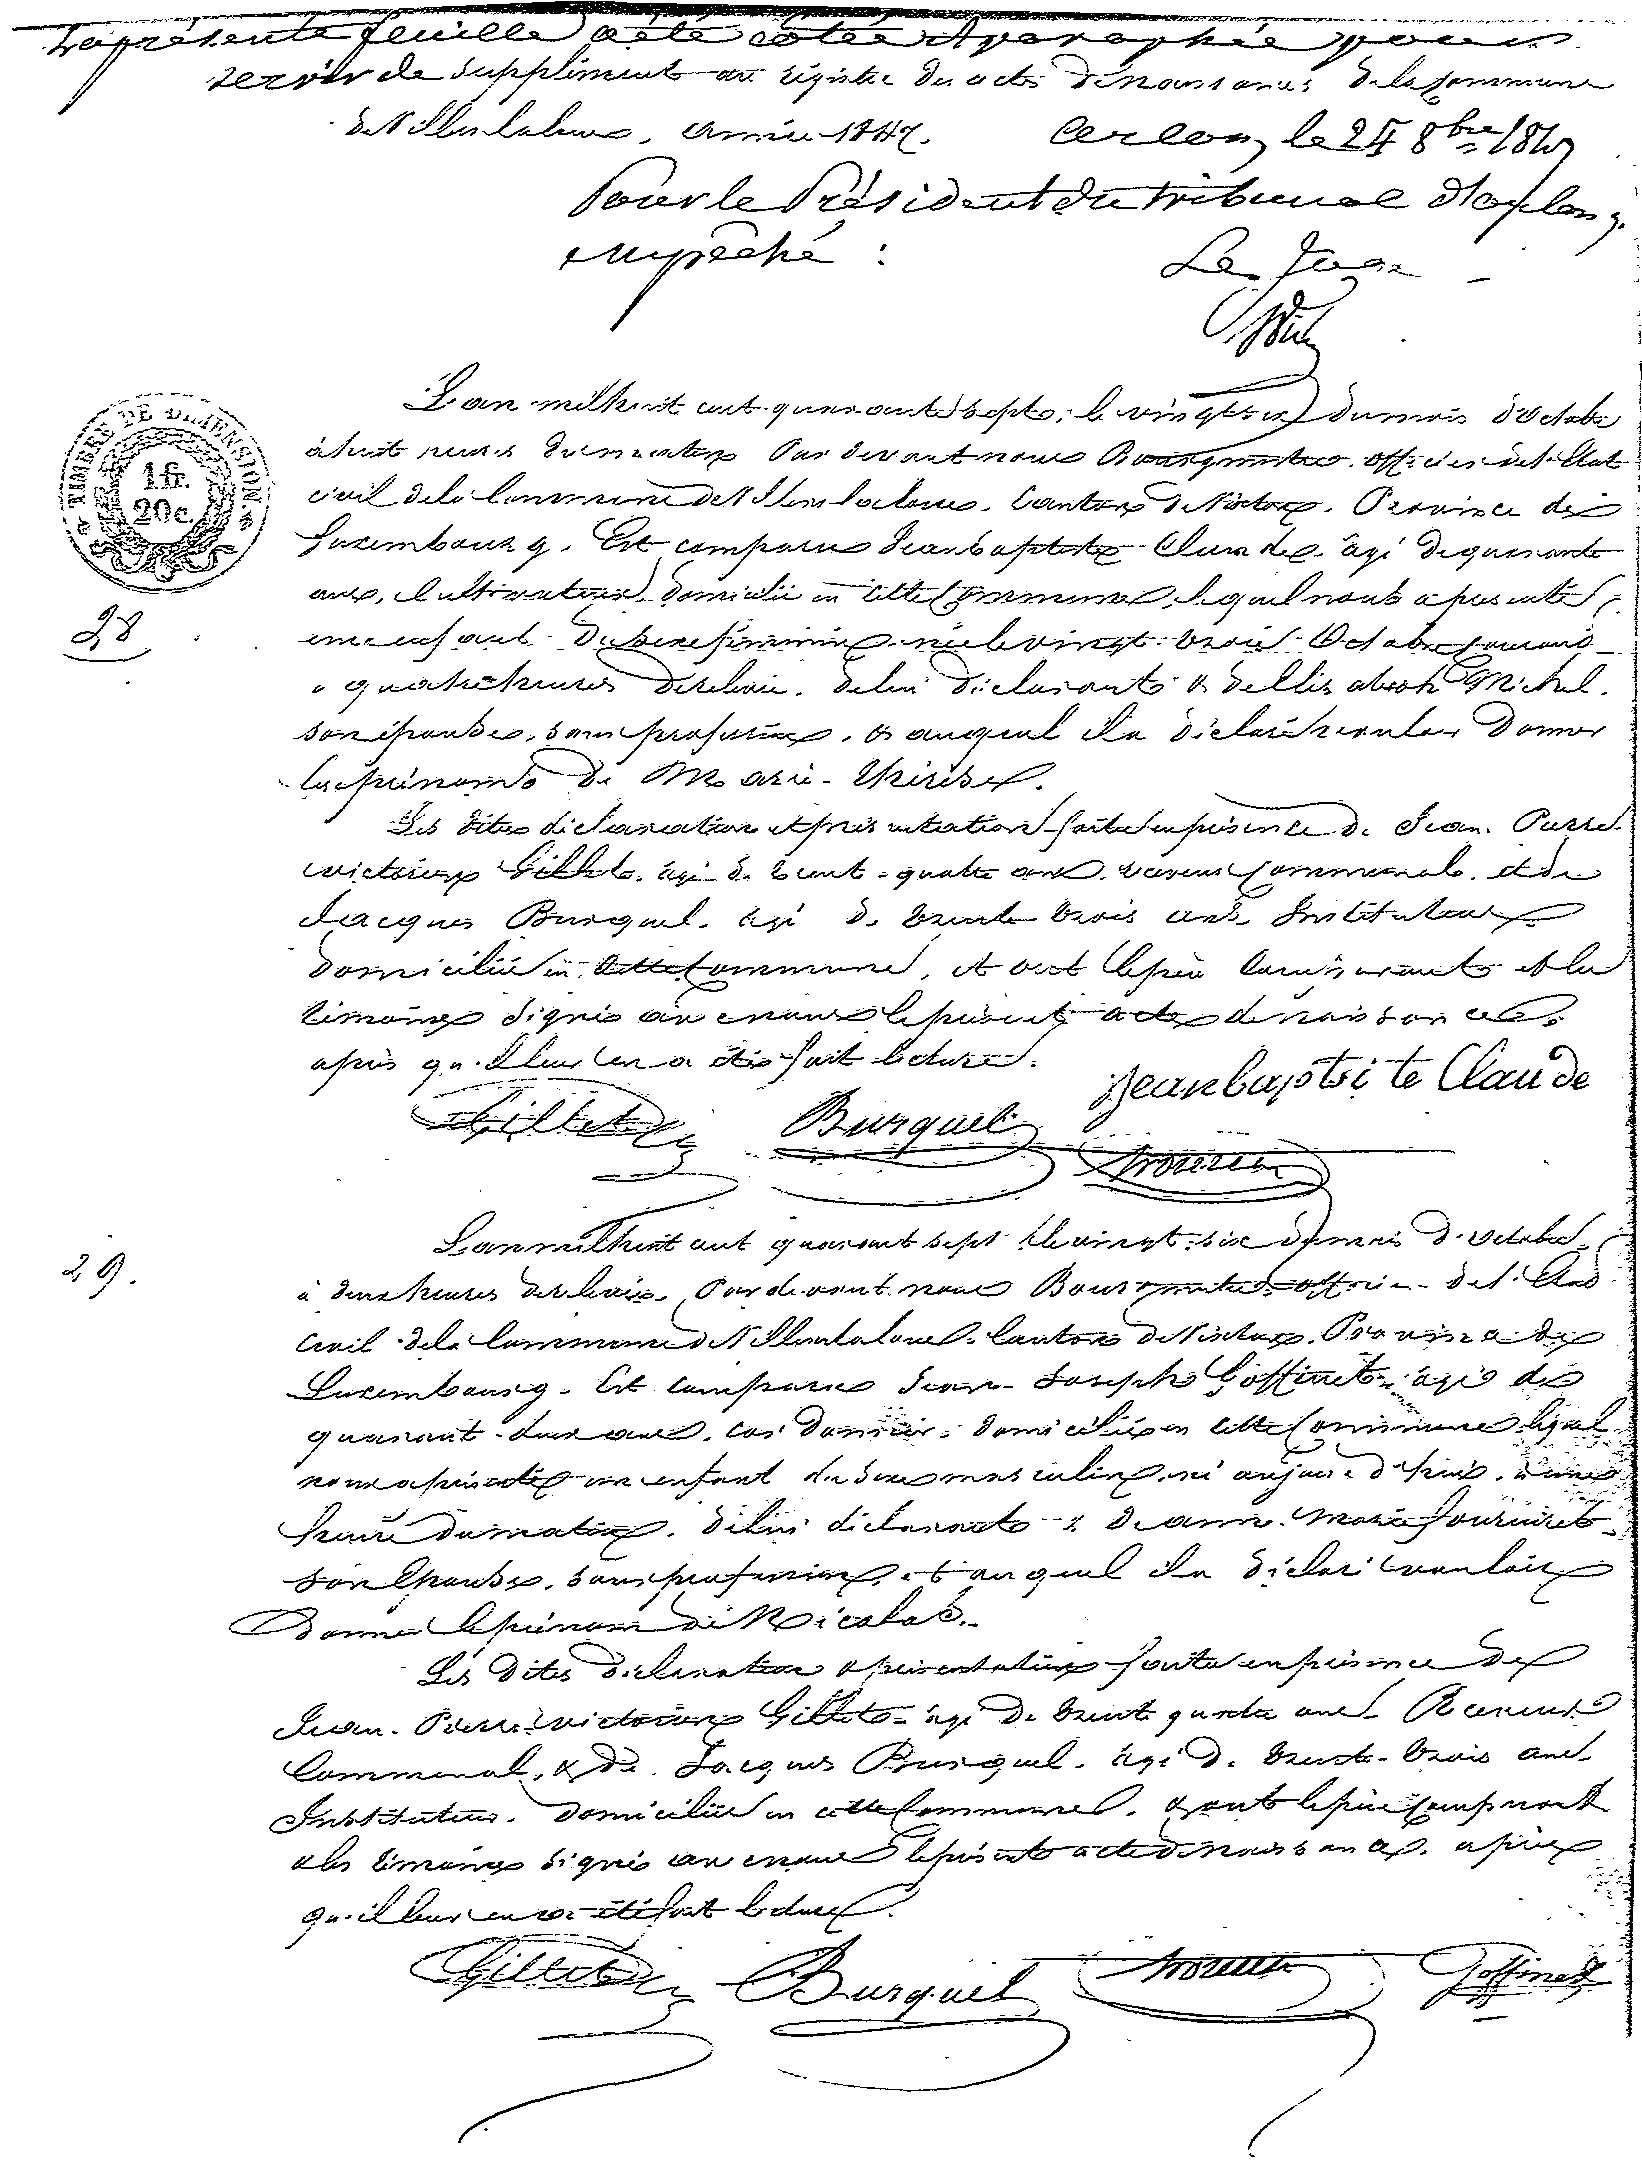 La présente feuille a été cotée et paraphée pour
servir de supplément au régistre des actes de naissances de la commune
de Villers la loue, année 1847. Arlon, le 24 8bre 1847
Pour le Président du tribunal d'Arlon,
empêché :
Le Juge
L'an mil huit cent quarante sept, le vingt six du mois d'Octobre
à huit heures du matin Par devant nous Bourgmestre officier de l'Etat
civil de la Commune de Villers la loue, Canton de Virton, Province de
TIMBRE DE DIMENSION
1 fr.
20 c.
Luxembourg. Est comparu Jean baptiste Claude, âgé de quarante
ans, cultivateur, domicilié en cette Commune, lequel nous a présenté
28
un enfant du sexe féminin née le vingt trois Octobre courant
à quatre heures de relevée, de lui déclarant & d'Elisabeth Michel,
son épouse, sans profession, & auquel il a déclaré vouloir donner
les prénoms de Marie-Thérèse.
Les dites déclaration et présentation faites en présence de Jean Pierre
victorien Gillet, âgé de trente-quatre ans, receveur Communal, et de
Jacques Burquel, âgé de trente trois ans, Instituteur
domicilié en cette Commune, et ont le père comparant et les
témoins signé avec nous le présent acte de naissance
après qu'il leur en a été fait lecture.
Jean baptiste Claude
Gillet Burquel
29.
L'an mil huit cent quarante sept le vingt six du mois d'octobre
à deux heures de relevée, Par devant nous Bourgmestre officier de l'Etat
civil de la Commune de Villers la loue, Canton de Virton, Province de
Luxembourg. Est comparu Jean Joseph Goffinet, âgé de
quarante deux ans, cordonnier, domicilié en cette Commune lequel
nous a présenté un enfant du sexe masculin, né aujourd'hui, à une
heure du matin, de lui déclarant & de anne Marie
son Epouse, sans profession, et auquel il a déclaré vouloir
Donner le prénom de Nicolas.
Les dites déclaration & présentation faites en présence de
Jean Pierre victorien Gillet âgé de trente quatre ans Receveur
Communal, & de Jacques Burquel, âgé de trente-trois ans
Instituteur, domicilié en cette Commune, & ont le père comparant
& les témoins signé avec nous le présent acte de naissance, après
qu'il leur en a été fait lecture.
Gillet Burquel Goffinet